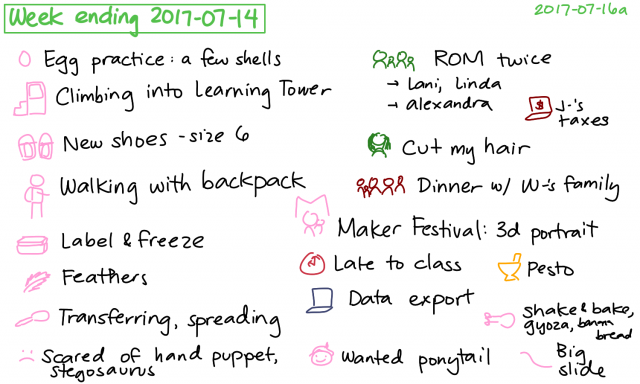 Week ending 2017-07-14
2017-07-16a
Egg practice: a few shells
Climbing into Learning Tower
New shoes - size 6
Walking with backpack
Label & freeze
Feathers
Transferring, spreading
Scared of hand puppet,
stegosaurus
ROM twice
→ Lani, Linda
→ alexandra
$
J-'s
taxes
Cut my hair
Dinner w/ W-'s family
Maker Festival: 3d portrait
Late to class
Pesto
Data export
shake & bake,
gyoza, banana
bread
Wanted ponytail
Big
slide